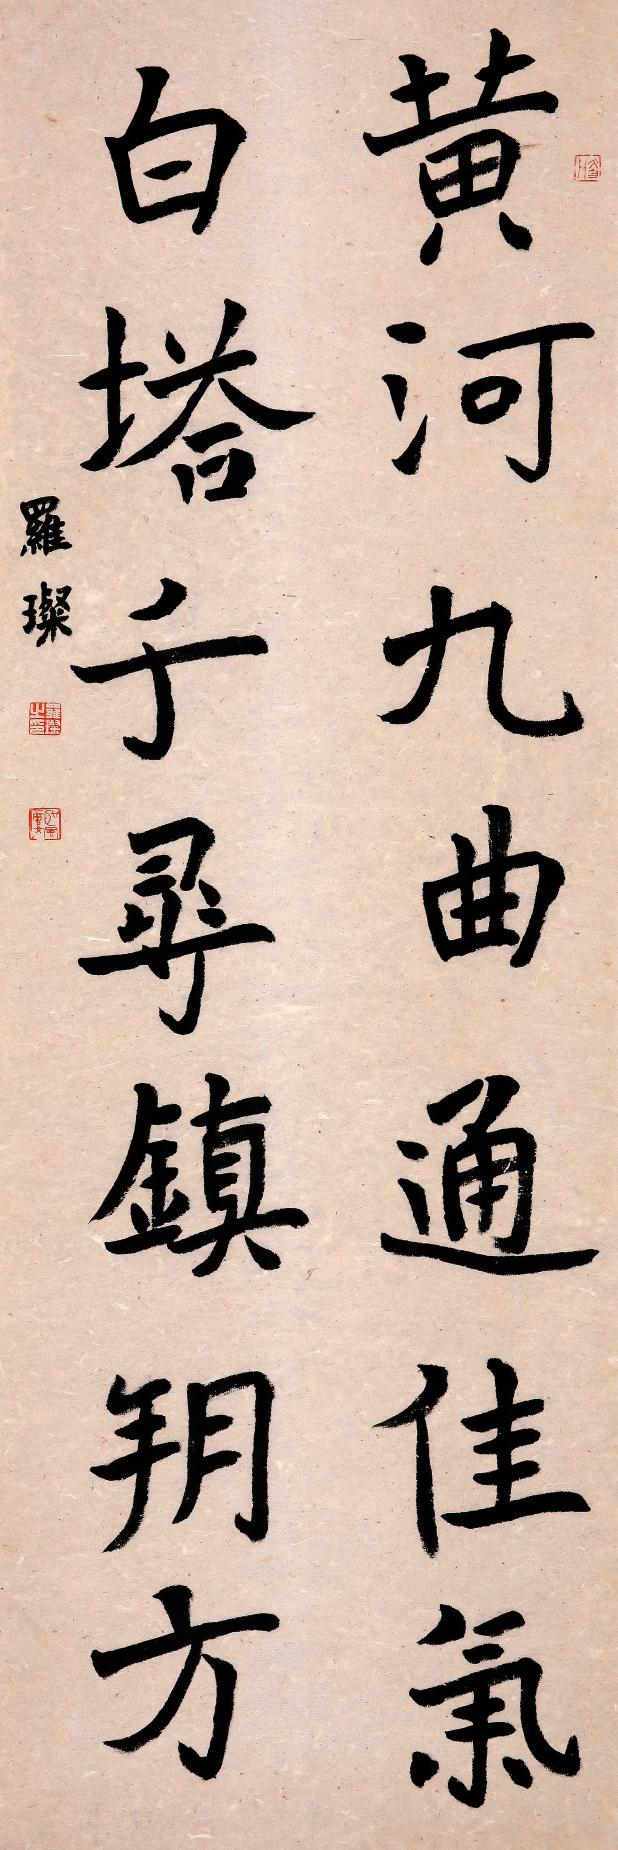 黄河九曲通佳氣
白塔千尋鎮朔方
羅璨